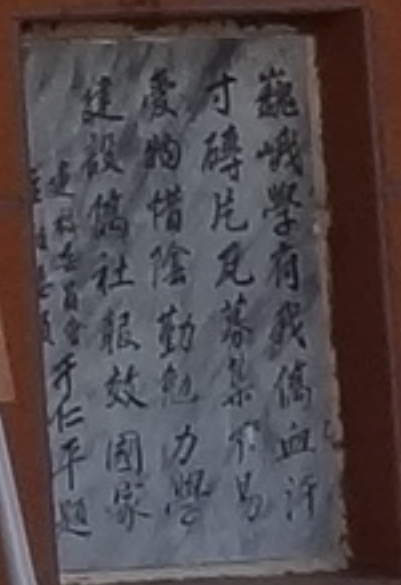 巍峨學府我僑血汗
寸磚片瓦募集不易
愛物惜陰勤勉力學
建設僑社報效國家
建校委員會
于仁平題